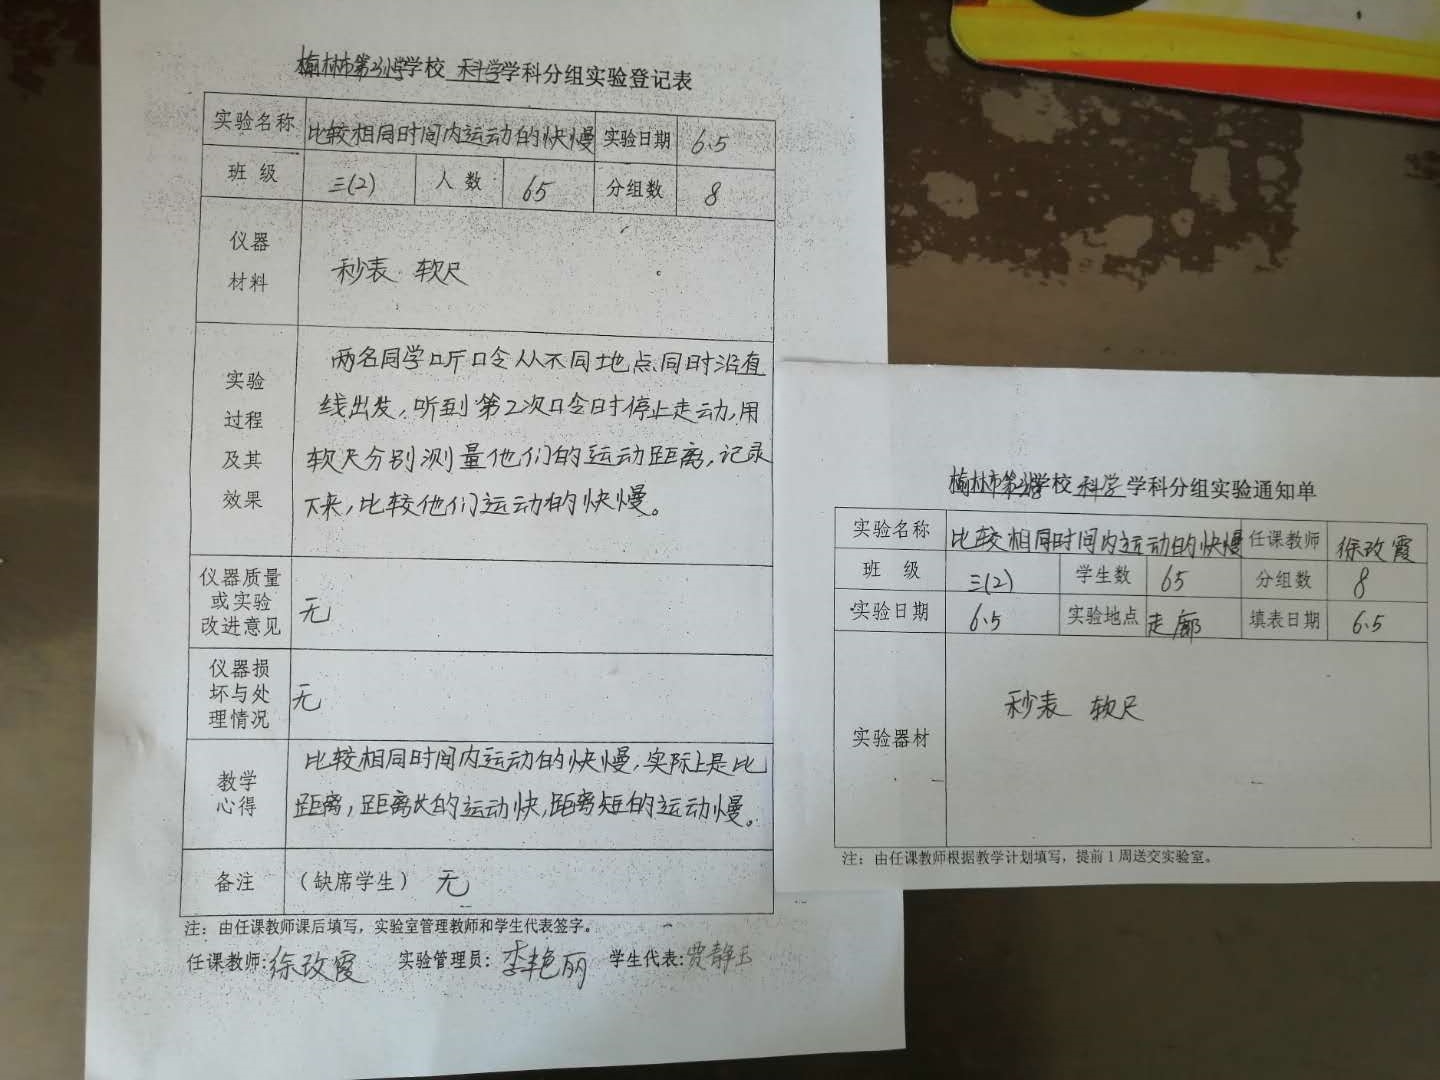 榆林市第 小学学校 科学学科分组实验登记表
实验名称 比较相同时间内运动的快慢 实验日期 6.5
班 级 三(2) 人 数 65 分组数 8
仪器
材料
秒表 软尺
实验
过程
及其
效果
两名同学听口令从不同地点、同时沿直
线出发,听到第2次口令时停止走动,用
软尺分别测量他们的运动距离,记录
下来,比较他们运动的快慢。
仪器质量
或实验
改进意见
无
仪器损
坏与处
理情况
无
教学
心得
比较相同时间内运动的快慢,实际上是比
距离,距离长的运动快,距离短的运动慢。
备注 (缺席学生) 无
注:由任课教师课后填写,实验室管理教师和学生代表签字。
任课教师:徐改霞 实验管理员:李艳丽 学生代表:贾静玉
榆林市第 学校 科学 学科分组实验通知单
实验名称 比较相同时间内运动的快慢 任课教师 徐改霞
班 级 三(2) 学生数 65 分组数 8
实验日期 6.5 实验地点 走廊 填表日期 6.5
实验器材 秒表 软尺
注:由任课教师根据教学计划填写,提前1周送交实验室。